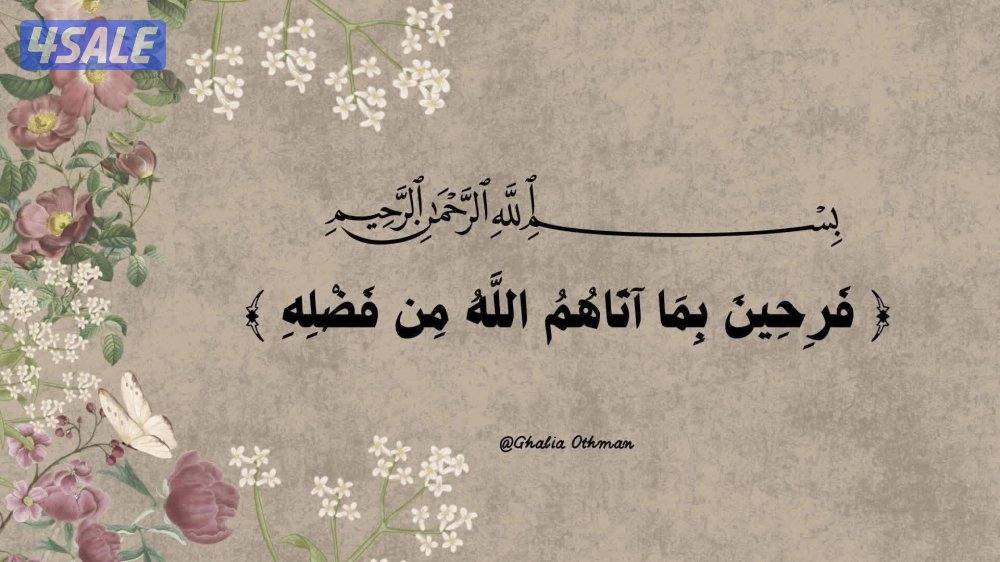 4SALE
بِسْمِ ٱللَّهِ ٱلرَّحْمَٰنِ ٱلرَّحِيمِ
﴿ فَرِحِينَ بِمَا آتَاهُمُ اللَّهُ مِن فَضْلِهِ ﴾
@Ghalia Othman